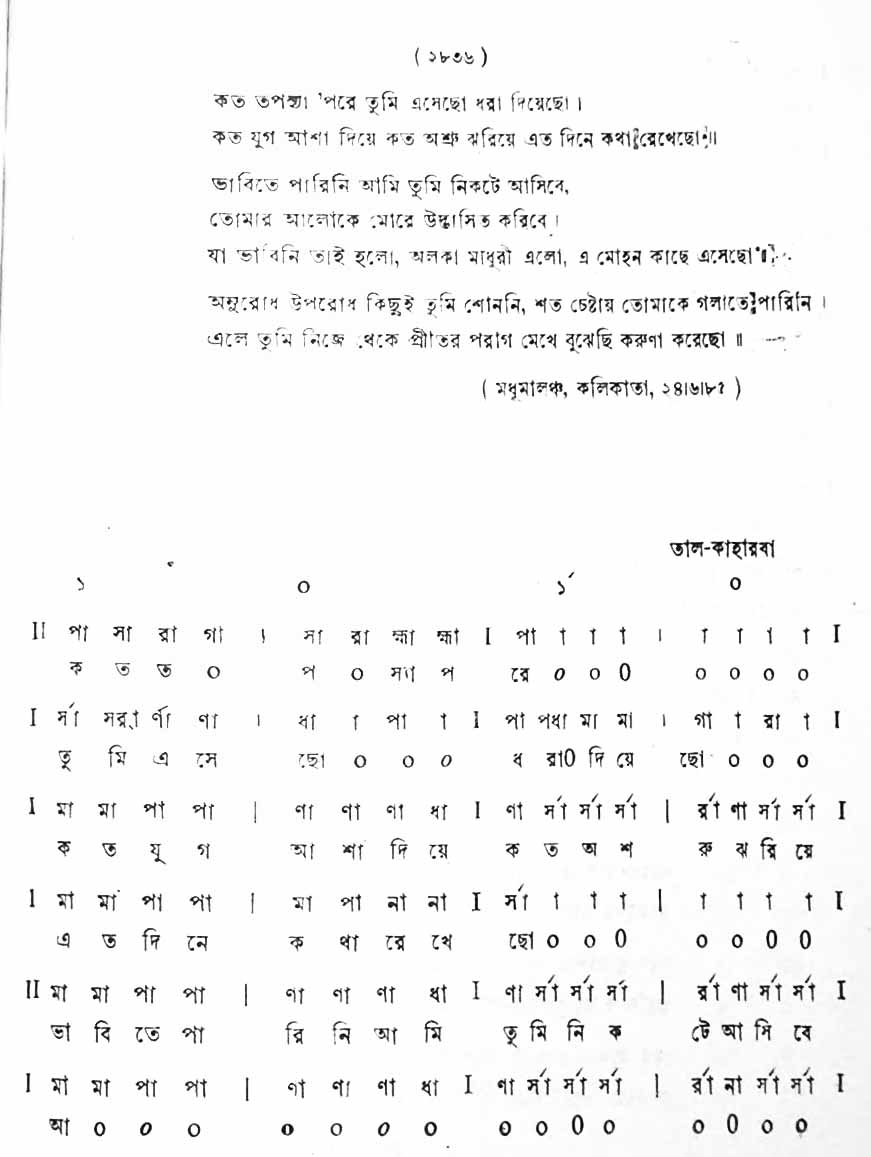 ( ২৮৩৬ )
কত তপস্যা 'পরে তুমি এসেছো ধরা দিয়েছো ।
কত যুগ আশা দিয়ে কত অশ্রু ঝরিয়ে এত দিনে কথা রেখেছো ॥
ভাবিতে পারিনি আমি তুমি নিকটে আসিবে,
তোমার আলোকে মোরে উদ্ভাসিত করিবে ।
যা ভাবিনি তাই হলো, অলকা মাধুরী এলো, এ মোহন কাছে এসেছো ॥
অনুরোধ উপরোধ কিছুই তুমি শোননি, শত চেষ্টায় তোমাকে গলাতে পারিনি ।
এলে তুমি নিজে থেকে প্রীতির পরাগ মেখে বুঝেছি করুণা করেছো ॥
( মধুমালঞ্চ, কলিকাতা, ২৪।৬।৮৫ )
তাল-কাহারবা
১ ০ ১´ ০
II পা সা রা গা । সা রা হ্মা হ্মা I পা া া া । া া া া I
ক ত ত ০ প ০ স্যা প রে ০ ০ 0 ০ ০ ০ ০
I র্সা র্সর্রা র্ণা ণা । ধা া পা া I পা পধা মা মা । গা া রা া I
তু মি এ সে ছো ০ ০ ০ ধ রা0 দি য়ে ছো ০ ০ ০
I মা মা পা পা | ণা ণা ণা ধা I ণা র্সা র্সা র্সা | র্রা ণা র্সা র্সা I
ক ত যু গ আ শা দি য়ে ক ত অ শ রু ঝ রি য়ে
I মা মা পা পা | মা পা না না I র্সা া া া | া া া া I
এ ত দি নে ক থা রে খে ছো ০ ০ 0 ০ ০ 0 0
II মা মা পা পা | ণা ণা ণা ধা I ণা র্সা র্সা র্সা | র্রা ণা র্সা র্সা I
ভা বি তে পা রি নি আ মি তু মি নি ক টে আ সি বে
I মা মা পা পা | ণা ণা ণা ধা I ণা র্সা র্সা র্সা | র্রা না র্সা র্সা I
আ ০ ০ ০ ০ ০ ০ ০ ০ ০ 0 ০ ০ 0 ০ ০